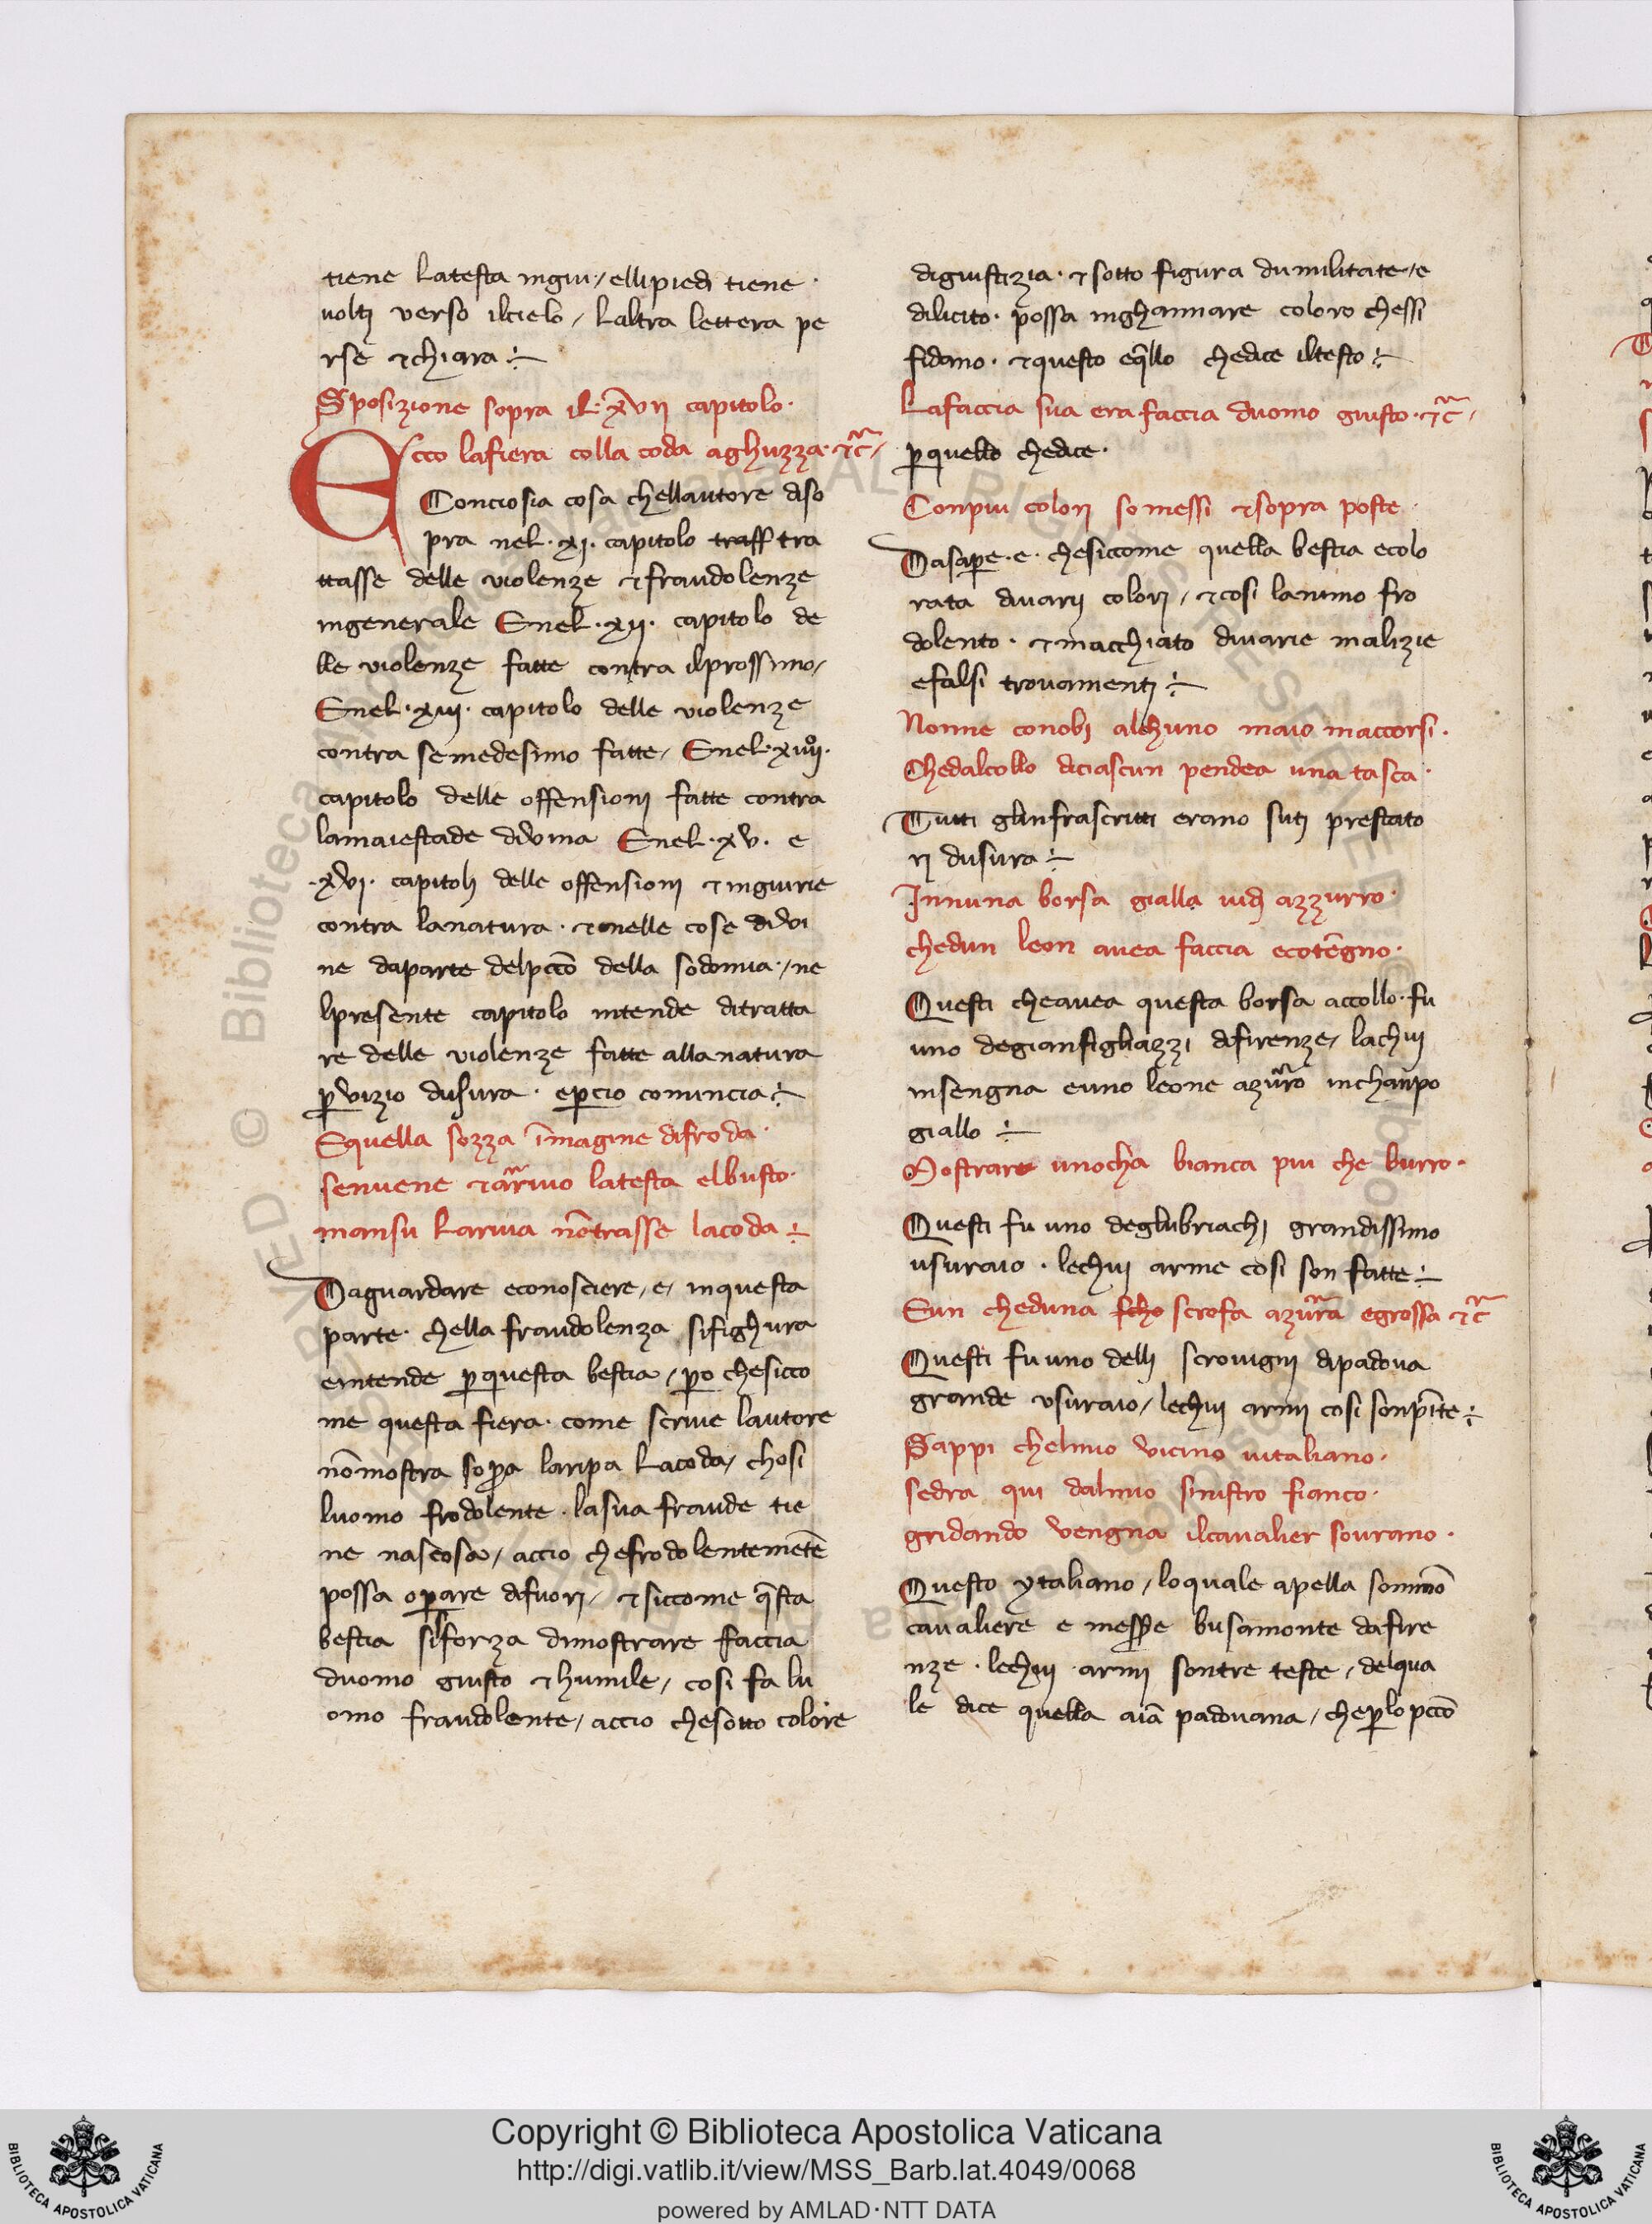 tiene latesta ingiu / ellipiedi tiene ·
uolti verso ilcielo / laltra lettera pe
rse ⁊chiara ÷
Sposizione sopra il · xvij capitolo ·
Ecco lafiera colla coda aghuzza · ⁊c̃ /
Conciosia cosa chellautore diso
pra nel · xj · capitolo traff tra
ttasse delle violenze ⁊fraudolenze
ingenerale Enel · xij · capitolo de
lle violenze fatte contra ilprossimo /
Enel · xiij · capitolo delle violenze
contra semedesimo fatte / Enel · xiiij ·
capitolo delle offensioni fatte contra
lamaiestade diuina Enel · xv · e
· xvj · capitoli delle offensioni ⁊ingiurie
contra lanatura · ⁊nelle cose diui
ne daparte delpcc̃o della sodomia · / ne
lpresente capitolo intende ditratta
re delle violenze fatte allanatura
ꝑvizio dusura · eꝑcio comincia ÷
Equella sozza ĩmagine difroda ·
senuene ⁊ar̃iuo latesta elbusto ·
mansu lariua nõtrasse lacoda ÷
Daguardare econosciere / e / inquesta
parte · chella fraudolenza sifighura
eintende ꝑquesta bestia / ꝑo chesicco
me questa fiera · come scriue lautore
nõmostra sopra laripa lacoda / chosi
luomo frodolente · lasua fraude tie
ne nascosa / accio chefrodolentemẽte
possa oꝑare difuori / ⁊siccome q̃sta
bestia sisforza dimostrare faccia
duomo giusto ⁊humile / cosi fa lu
omo fraudolente / accio chesotto colore
digiustizia · ⁊sotto figura dumilitate / e
dilicito · possa inghannare coloro chessi
fidano · ⁊questo eq̃llo chedice iltesto ÷
Lafaccia sua era faccia duomo giusto · ⁊c̃ /
ꝑquello chedice ·
Conpiu colori somessi ⁊sopra poste ·
Dasaꝑe · e · chesiccome quella bestia ecolo
rata diuarij colori / ⁊cosi lanimo fro
dolento · ⁊macchiato diuarie malizie
efalsi trouamenti ÷
Nonne conobi alchuno maio maccorsi ·
Chedalcollo diciascun pendea una tasca ·
Tutti glinfrascritti erano suti prestato
ri dusura ÷
Innuna borsa gialla uidi azzurro ·
chedun leon auea faccia ecotẽgno ·
Questi cheauea questa borsa accollo · fu
uno degianfigliazzi difirenze / lachui
insengna euno leone azur̃o inchanpo
giallo ÷
Mostrare unocha bianca piu che burro ·
Questi fu uno deglubriachi grandissimo
usuraio · lechui arme cosi son fatte ÷
Eun cheduna scho scrofa azur̃a egrossa ⁊c̃
Questi fu uno delli scrouigni dipadoua
grande usuraio / lechui armi cosi sonpĩte ÷
Sappi chelmio vicino uitaliano ·
sedra qui dalmio sinistro fianco ·
gridando vengna ilcaualier sourano ·
Questo ytaliano / loquale apella sommo
caualiere e messere busamonte dafire
nze · lechui armi sontre teste / delqua
le dice quella aĩa padouana / cheꝑlo pcc̃o
Copyright © Biblioteca Apostolica Vaticana
http://digi.vatlib.it/view/MSS_Barb.lat.4049/0068
powered by AMLAD·NTT DATA
BIBLIOTECA APOSTOLICA VATICANA
BIBLIOTECA APOSTOLICA VATICANA